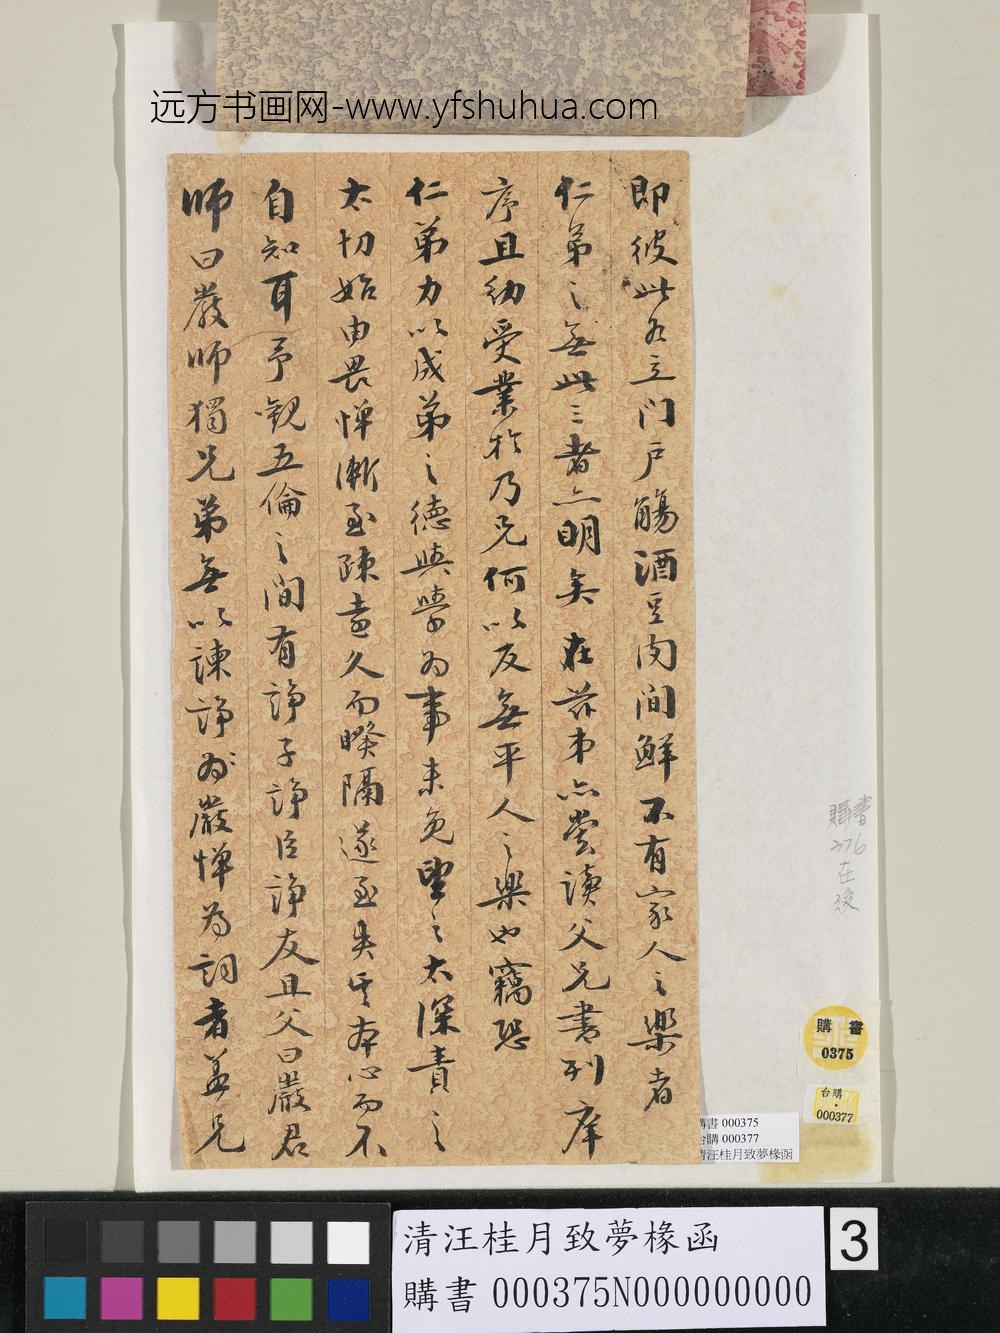 远方书画网-www.yfshuhua.com
即彼此各立门戶觴酒豆肉間鮮不有家人之樂者
仁弟之無此三者亦明矣在昔弟亦嘗讀父兄書列庠
序且幼受業於乃兄何以反無平人之樂也竊恐
仁弟力以成弟之德與學為事未免望之太深責之
太切始由畏憚漸至疎遠久而睽隔遂至失其本心而不
自知耳予觀五倫之間有諍子諍臣諍友且父曰嚴君
師曰嚴師獨兄弟無以諫諍為嚴憚為詞者蓋兄
購書
276
在後
購書
0375
台購
000377
購書 000375
台購 000377
清汪桂月致夢椽函
清汪桂月致夢椽函
購書 000375N000000000
3